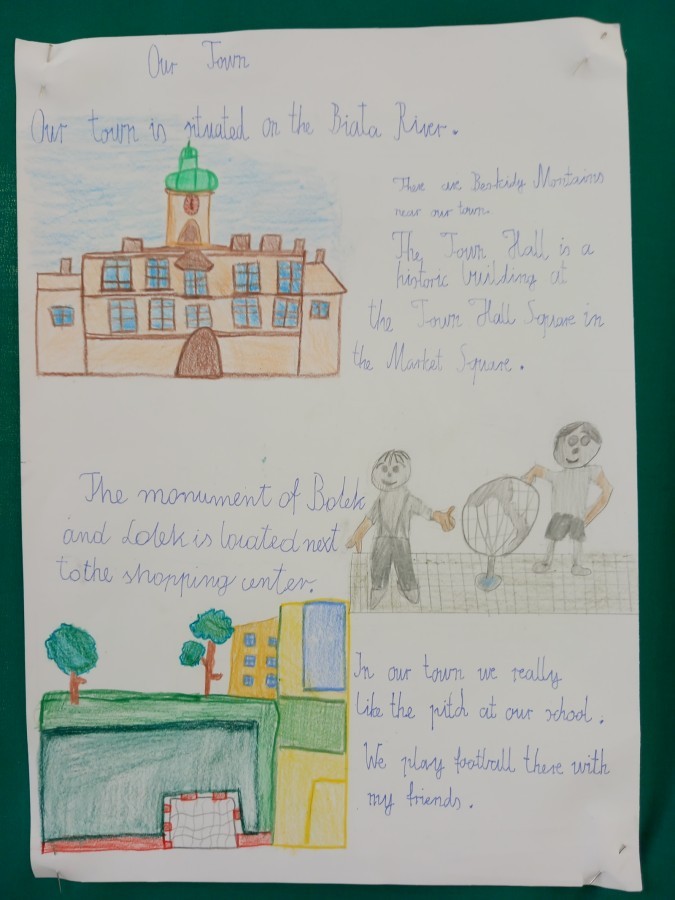 Our Town
Our town is situated on the Biała River.
There are Beskidy Montains
near our town.
The Town Hall is a
historic building at
the Town Hall Square in
the Market Square.
The monument of Bolek
and Lolek is located next
to the shopping center.
In our town we really
like the pitch at our school.
We play football there with
my friends.